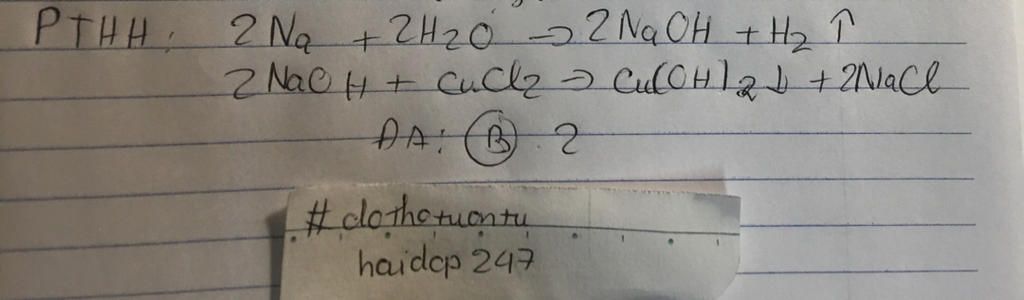 PTHH: 2Na + 2H2O → 2NaOH + H2 ↑
2NaOH + CuCl2 → Cu(OH)2 ↓ + 2NaCl
ĐA: B. 2
#dothetuantu
haidcp 247